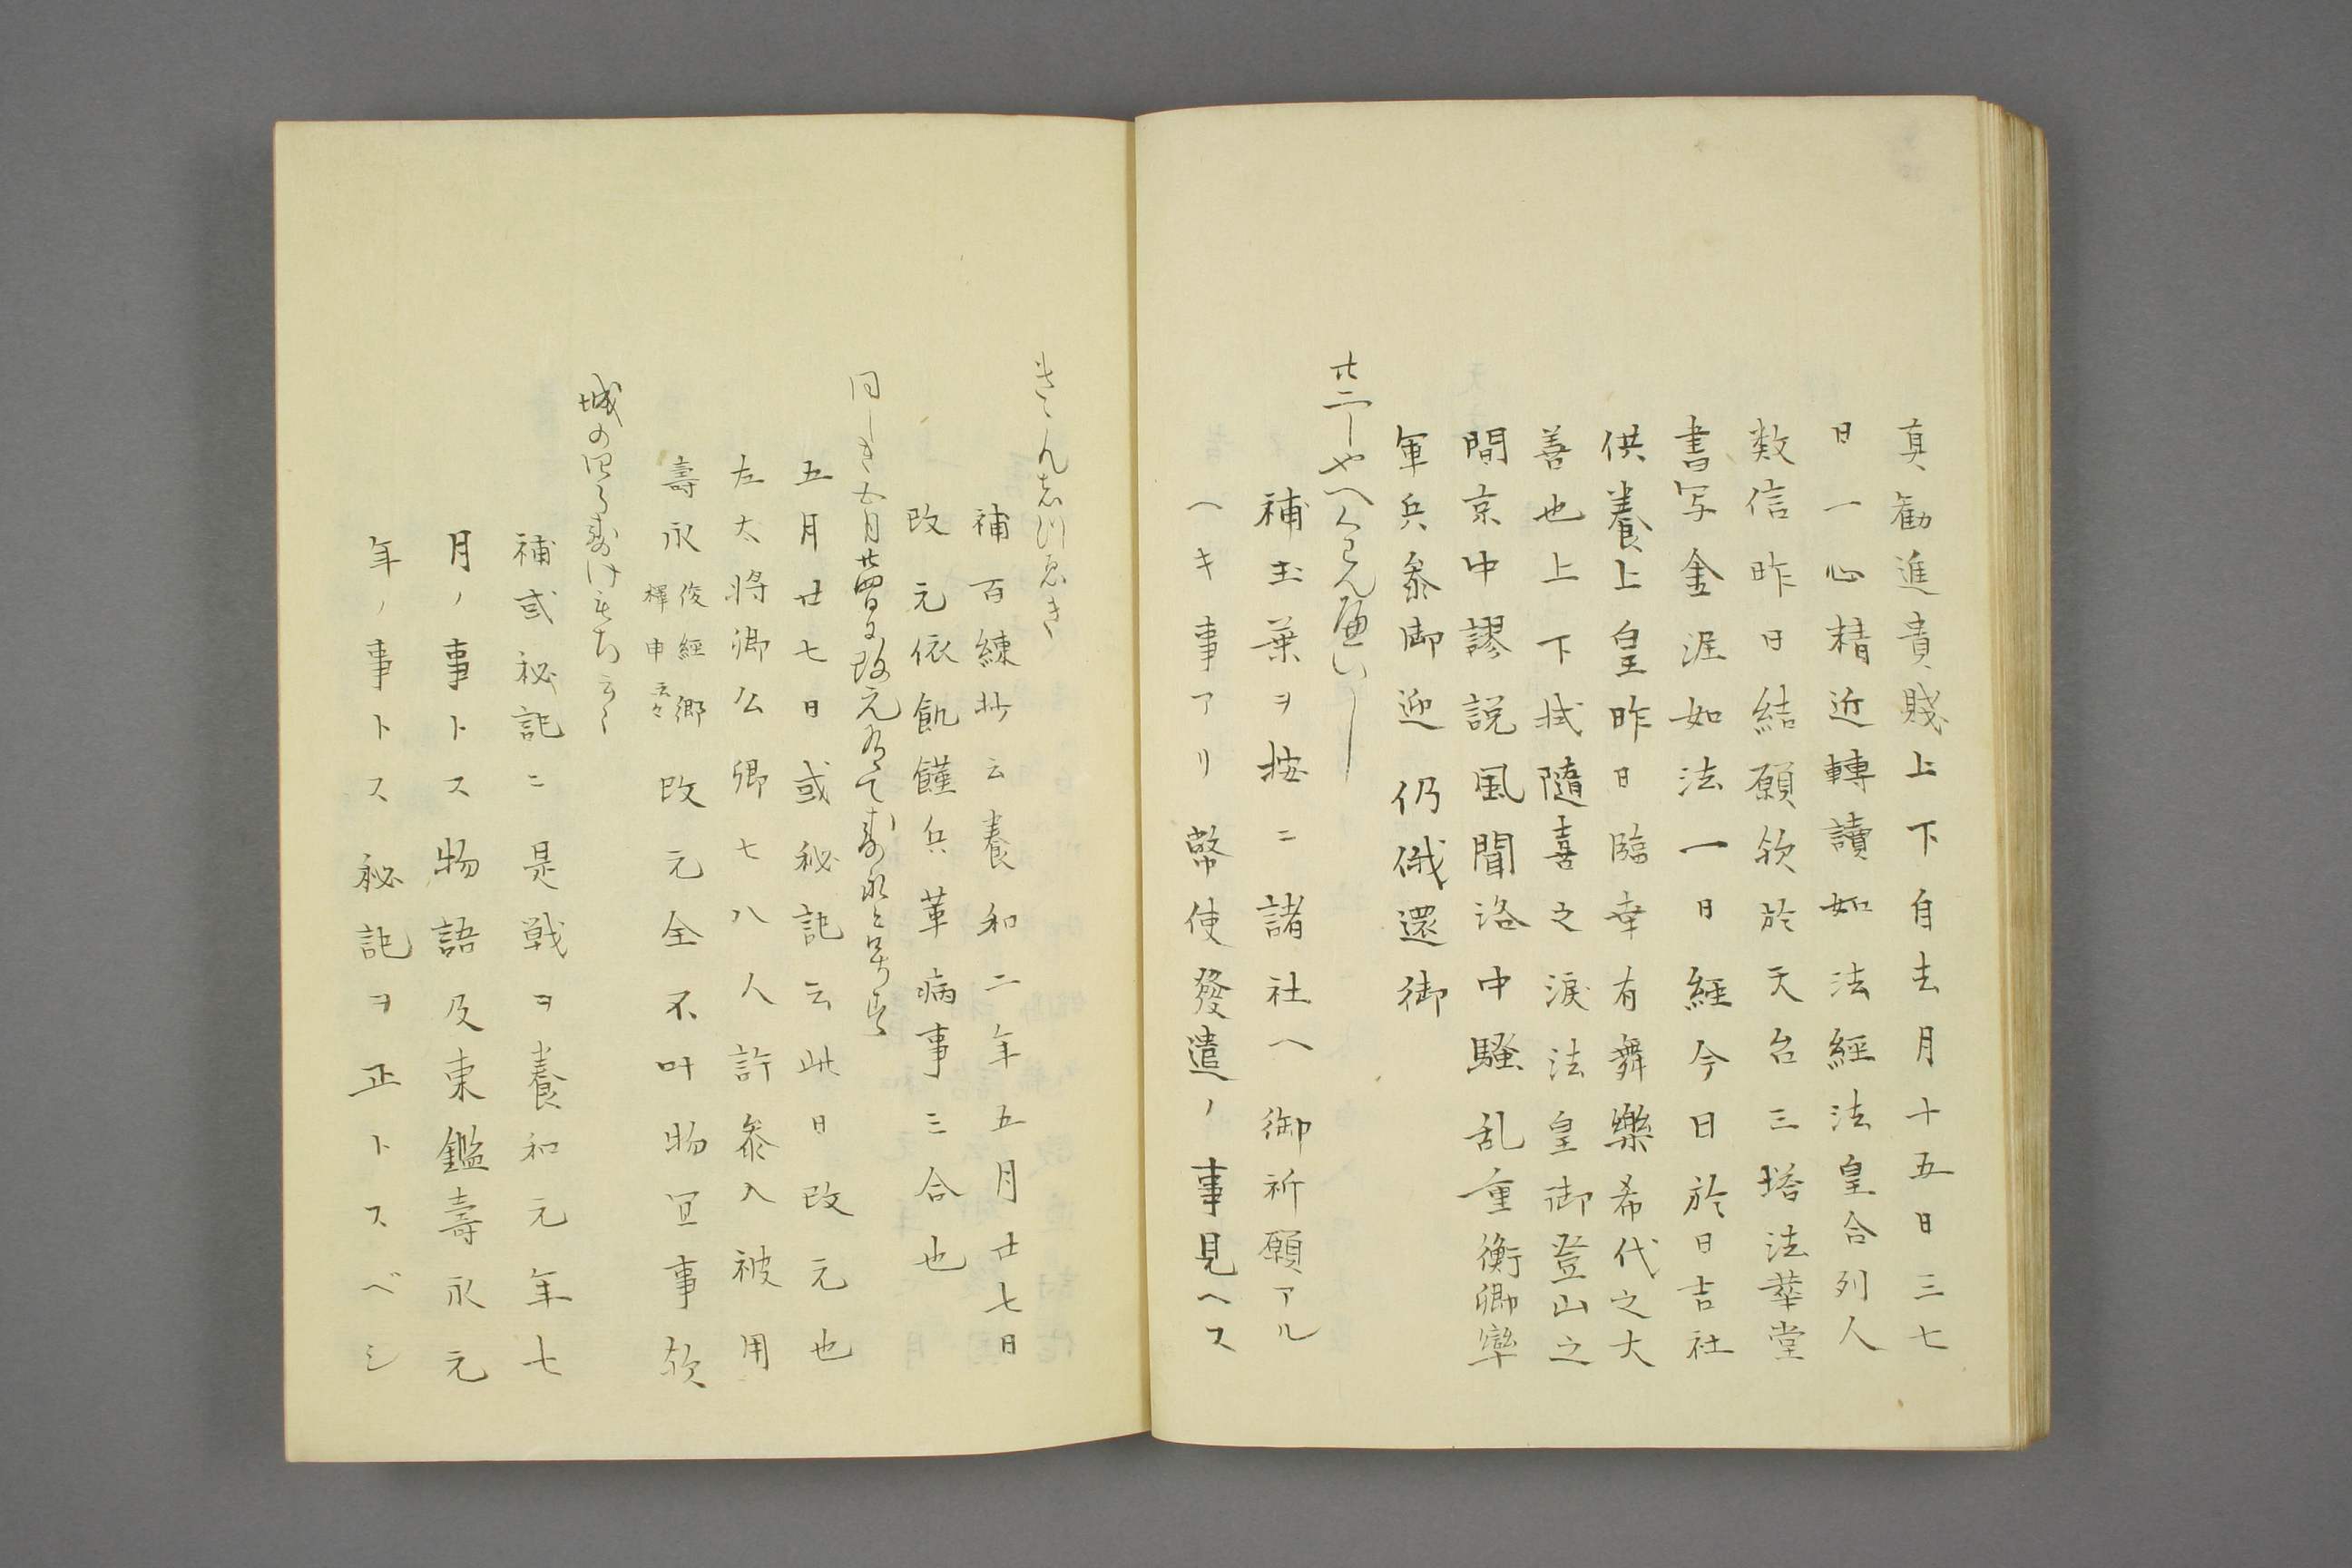 真勧進貴賤上下自去月十五日三七
日一心精近轉讀如法經法皇合列人
数信昨日結願欤於天台三塔法華堂
書写金泥如法一日經今日於日吉社
供養上皇昨日臨幸有舞樂希代之大
善也上下拭隨喜之淚法皇御登山之
間京中謬説風聞洛中騒乱重衡卿率
軍兵叅御迎仍俄還御
廿二しやへくわん幣いし
補玉葉ヲ按ニ諸社ヘ御祈願アル
ヘキ事アリ幣使發遣ノ事見ヘス
きゝん
補百練抄云養和二年五月廿七日
改元依飢饉兵革病事三合也
同しき五月廿四日に改元有て寿永と号す
五月廿七日或秘記云此日改元也
左大将卿公卿七八人許叅入被用
壽永俊經卿擇申云々改元全不叶物冝事欤
城の四らう
補或祕記ニ是戦ヲ養和元年七
月ノ事トス物語及東鑑壽永元
年ノ事トス祕記ヲ正トスベシ